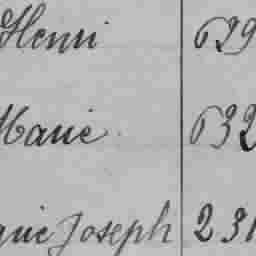 Henri 629
Marie 632
Joseph 231